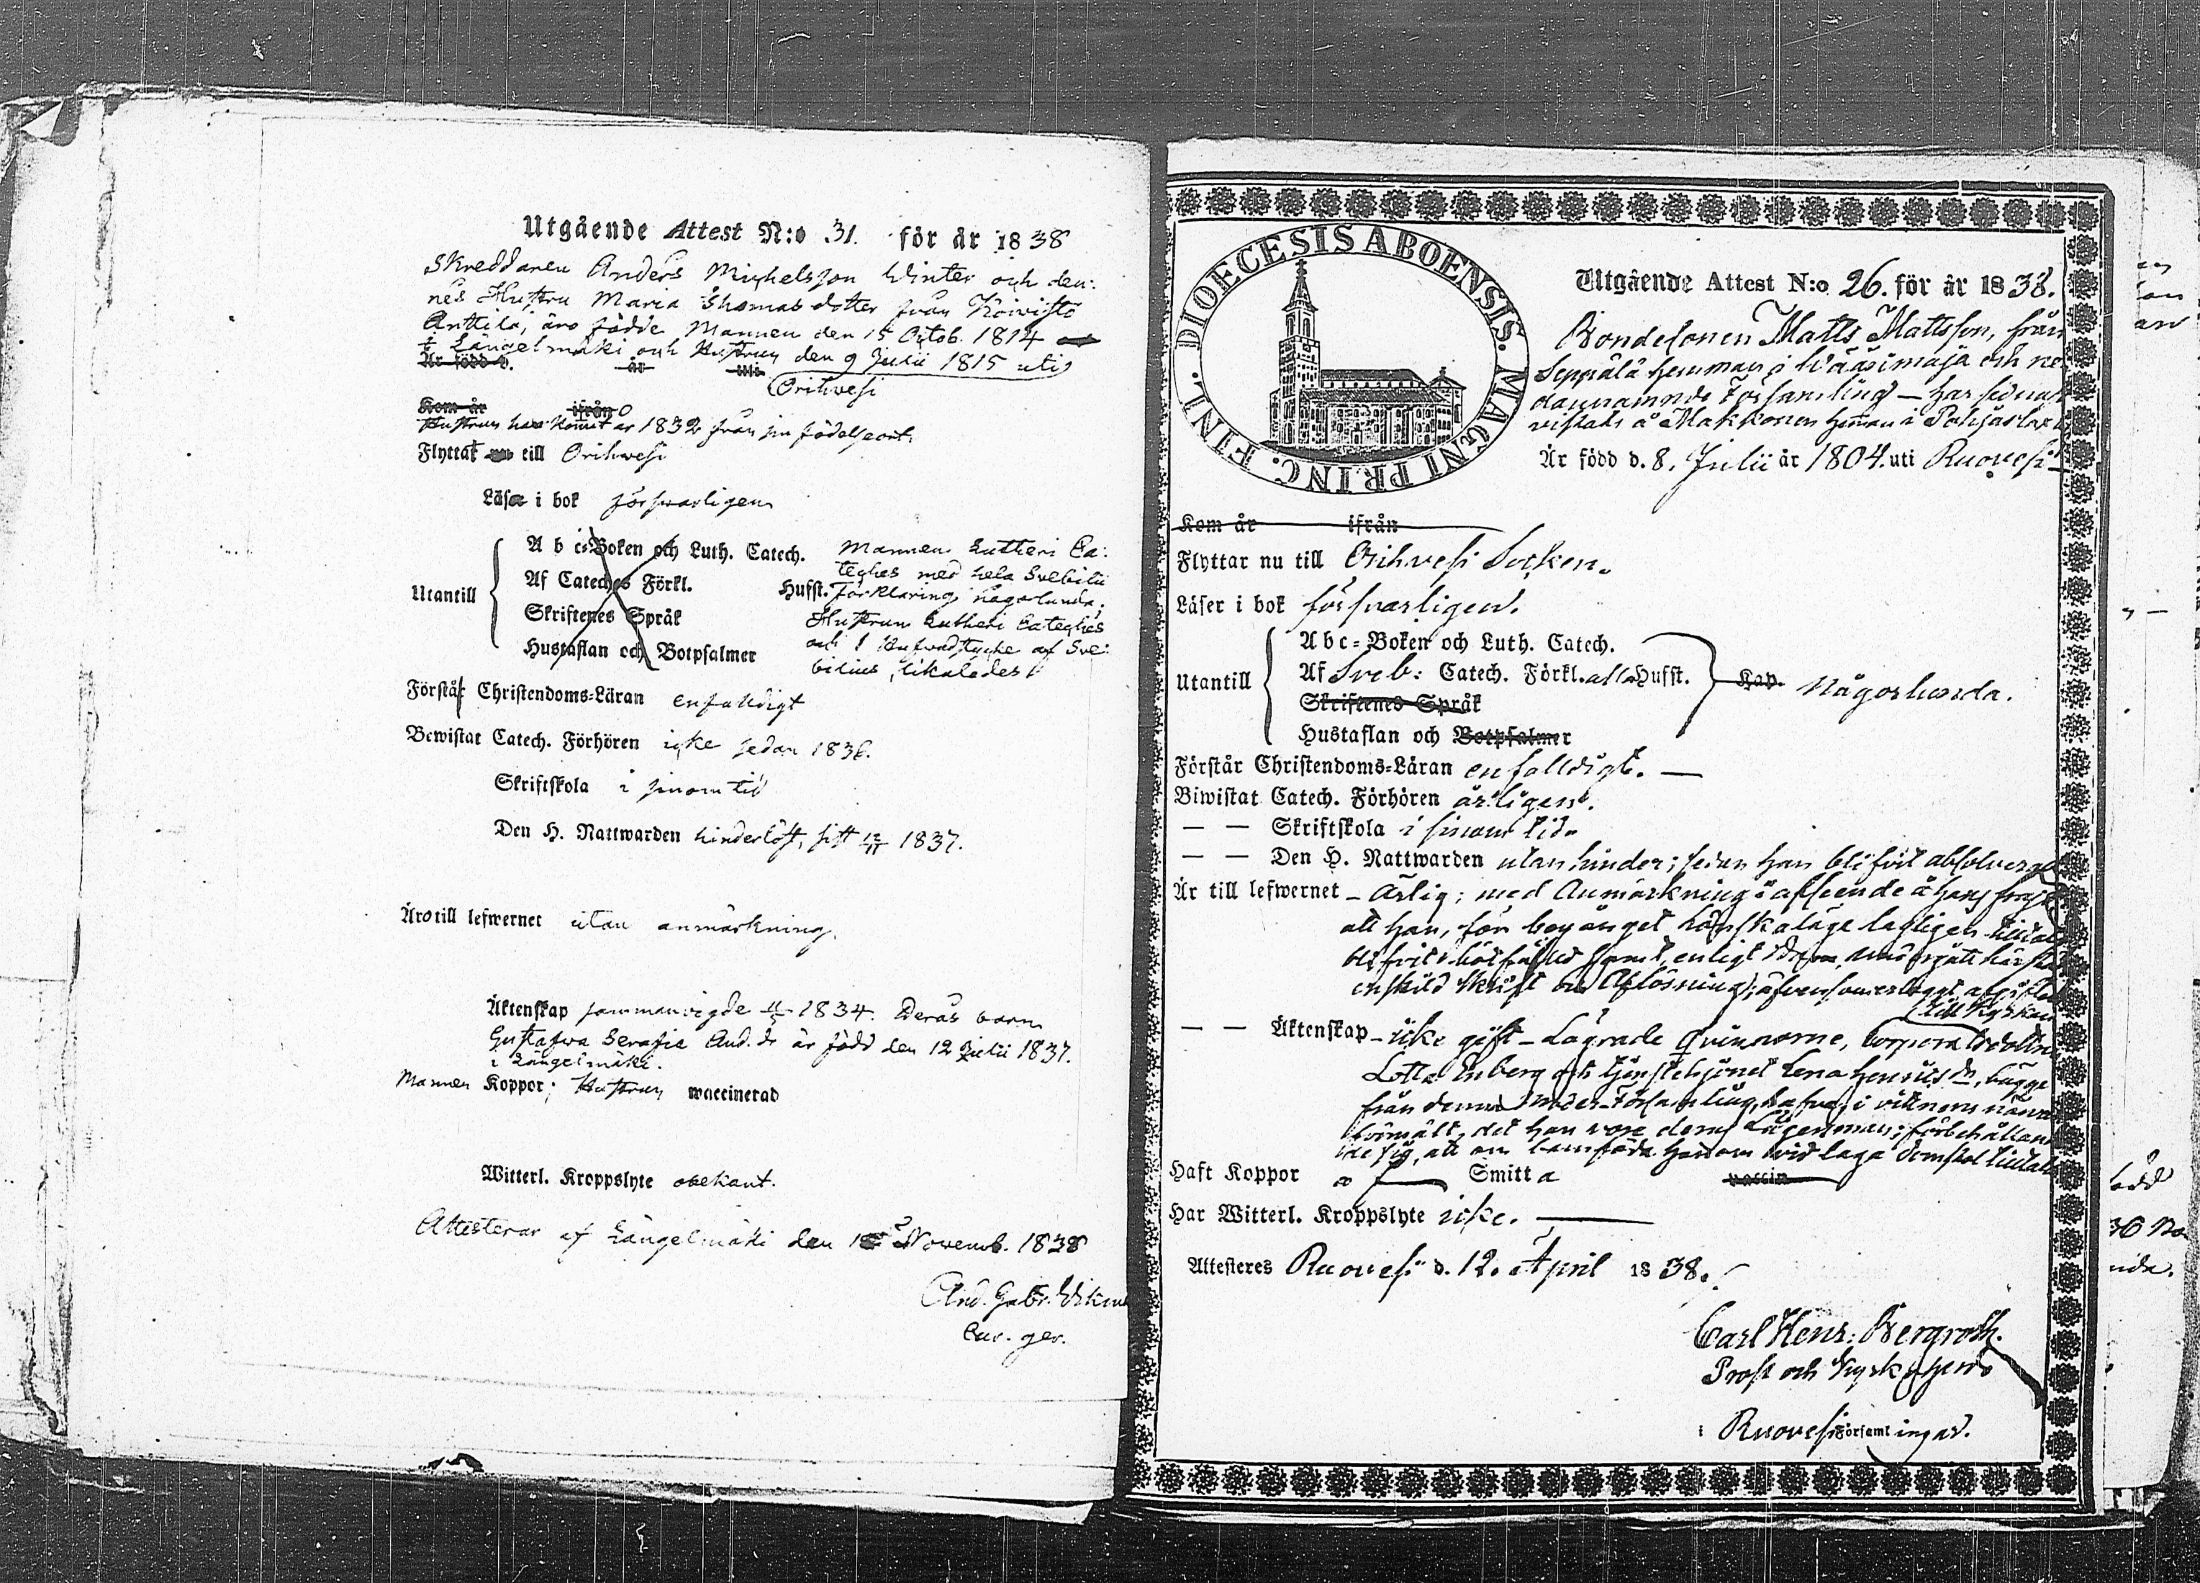 Utgående Attest N:o 31. för år 1838
Skreddaren Anders Michelsson Winter och den-
nes Hustru Maria Thomasdotter från Koivisto
Anttila, äro födde Mannen den 15 Octob. 1814
i Längelmäki och Hustrun den 9 Julii 1815 uti
Är född d. år uti
Orihvesi
Kom år ifrån
Hustrun har kommit år 1832 från sin födelseort.
Flyttat till Orihwesi
Läsa i bok försvarligen
Utantill
A b c-Boken och Luth. Catech.
Af Cateches Förkl. Hufst.
Skriftenes Språk
Hustaflan och Botpsalmer
Mannen Lutheri Ca-
teches med hela Svebilii
Förklaring någorlunda;
Hustrun Lutheri Cateches
och 1 Hufvudstycke af Sve-
bilius, likaledes
Förstår Christendoms-Läran enfalldigt
Bewistat Catech. Förhören icke sedan 1836.
Skriftskola i sinom tid
Den H. Nattwarden hinderlöst, sist 12/11 1837.
Äro till lefwernet utan anmärkning.
Äktenskap sammanvigde 1834. Deras barn
Gustafwa Serafia And.dr är född den 12 Julii 1837.
i Längelmäki.
Mannen Koppor; Hustrun waccinerad
Witterl. Kroppslyte obekant.
Attesterar af Längelmäki den Novemb. 1838
And. Gabr.
Cur. ger.
DIOECESIS ABOENSIS. MAGNI PRINC. FINL.
Utgående Attest N:o 26. för år 1838.
Bondesonen Matts Mattsson, från
Seppälä hemman i Wääsimaja och ne-
dannamnde Församling — har sednast
vistats å Makkonen hemman i Pohjaslax
Är född d. 8. Julii år 1804. uti Ruovesi
Kom år ifrån
Flyttar nu till Orihvesi Socken.
Läser i bok försvarligen.
Utantill
A b c-Boken och Luth. Catech.
Af Sveb: Catech. Förkl. alla Hufst.
Skriftenes Språk
Hustaflan och Botpsalmer
Kap. någorlunda.
Förstår Christendoms-Läran enfalldigt. —
Biwistat Catech. Förhören årligen.
— — Skriftskola i sinom tid.
— — Den H. Nattwarden utan hinder; sedan han blifvit absolverad
Är till lefwernet - Ärlig; med Anmärkning i afseende å hans frejd
att han, för begånget lönskaläge lagligen
blifvit bötfälld samt, enligt
enskild Skrift och Aflösning; äfvensom erlaggt afgiften
till Kyrkan
— — Äktenskap - icke gift - Lägrade qvinnorne,
Lotta Enberg och tjenstehjonet Lena Henrics dr, bägge
från denna Moder-Församling, hafva i vittnens närvaro
förmält, det han vore deras Lägersman; förbehållan-
de sig, att om barnföda honom vid laga domstol tilltala
Haft Koppor a Smitta vaccin
Har Witterl. Kroppslyte icke. —
Attesteres Ruovesi d. 12. April 1838.
Carl Henr: Bergroth.
Prost och Kyrkoherde
i Ruovesi Församlingar.